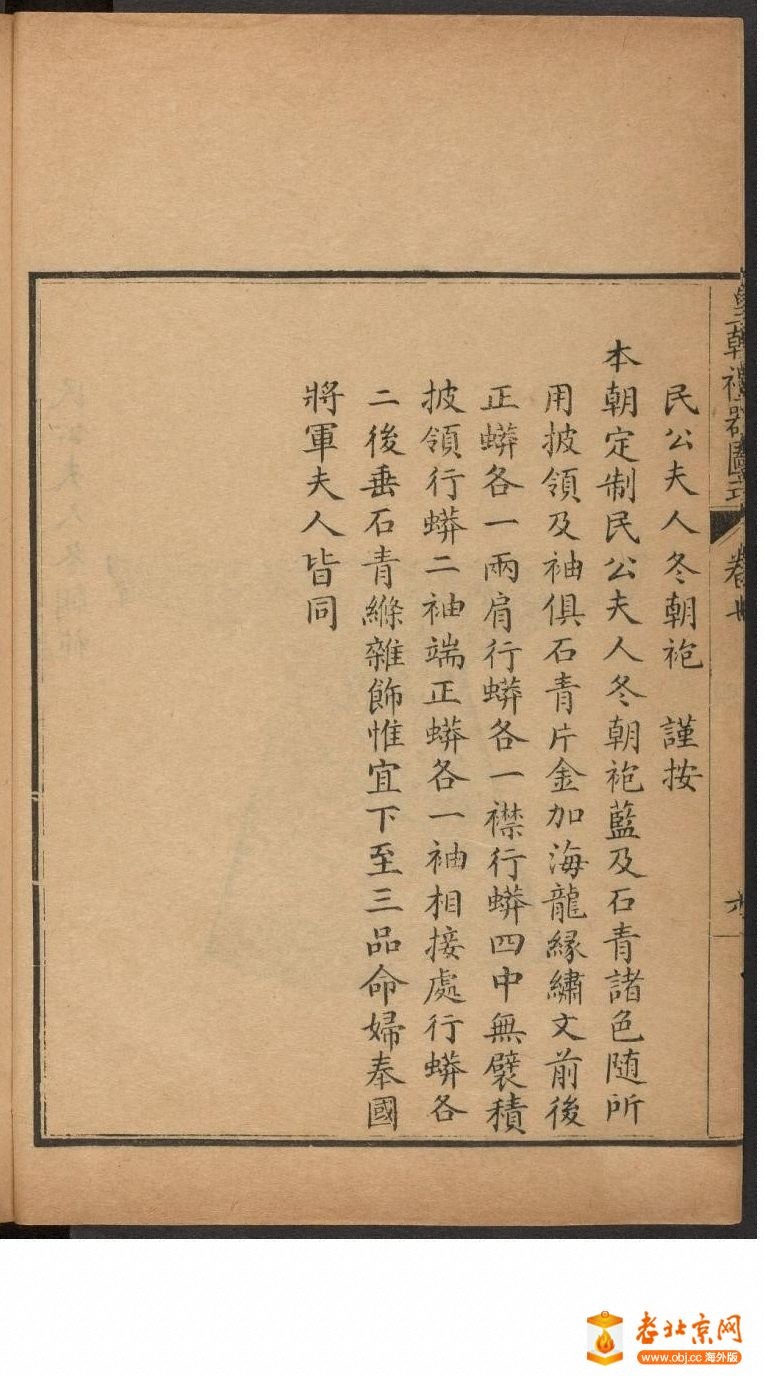 皇朝禮器圖式 卷
民公夫人冬朝袍　謹按
本朝定制民公夫人冬朝袍藍及石青諸色随所
用披領及袖俱石青片金加海龍縁繡文前後
正蟒各一兩肩行蟒各一襟行蟒四中無襞積
披領行蟒二袖端正蟒各一袖相接處行蟒各
二後垂石青縧雜飾惟宜下至三品命婦奉國
將軍夫人皆同
老北京网
www.obj.cc 海外版